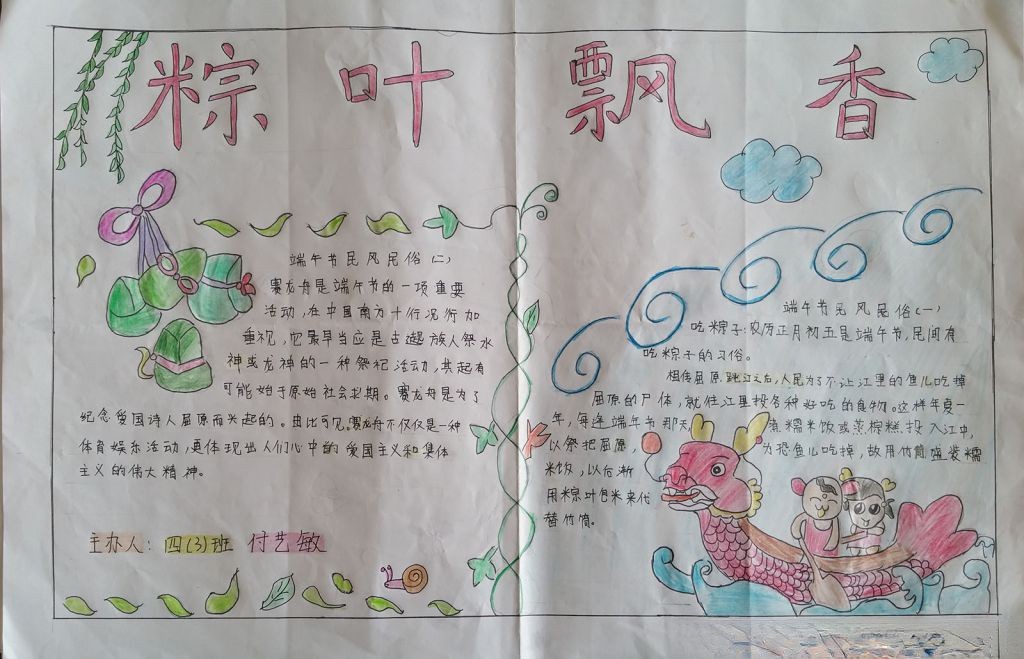 粽叶飘香
端午节民风民俗(二)
赛龙舟是端午节的一项重要
活动,在中国南方十行况行加
重视,它最早当应是古越族人祭水
神或龙神的一种祭祀活动,其起有
可能始于原始社会末期。赛龙舟是为了
纪念爱国诗人屈原而兴起的。由此可见,赛龙舟不仅仅是一种
体育娱乐活动,更体现出人们心中的爱国主义和集体
主义的伟大精神。
主办人:四(3)班 付艺敏
端午节民风民俗(一)
吃粽子:农历正月初五是端午节,民间有
吃粽子的习俗。
相传屈原跳江之后,人民为了不让江里的鱼儿吃掉
屈原的尸体,就往江里投各种好吃的食物。这样年复一
年,每逢端午节那天,煮糯米饭或蒸粽糕投入江中,
以祭把屈原,为恐鱼儿吃掉,故用竹筒盛装糯
米饭,以后渐
用粽叶包米来代
替竹筒。